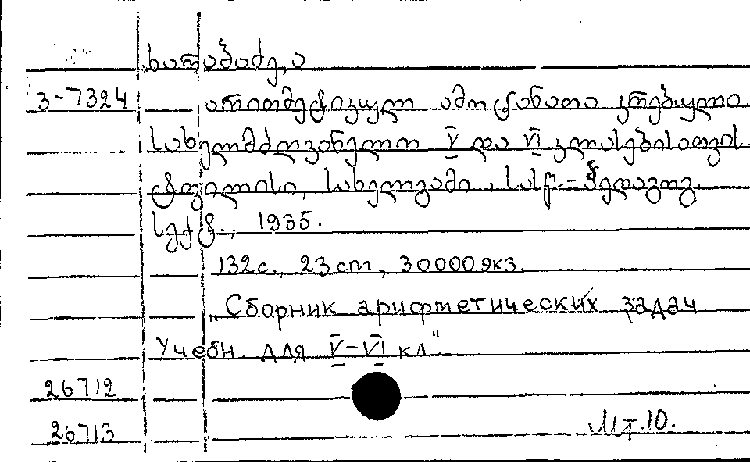 ხარაბაძე, ა
3-7324 არითმეტიკული ამოცანათა კრებული
სახელმძღვანელო V და VI კლასებისათვის
ტფილისი, სახელგამი, სასწ.-პედაგოგ.
სექტ., 1935.
132с., 23cm, 30000экз.
„Сборник арифметических задач
Учебн. для V-VI кл"
26712
26713 Мт.10.